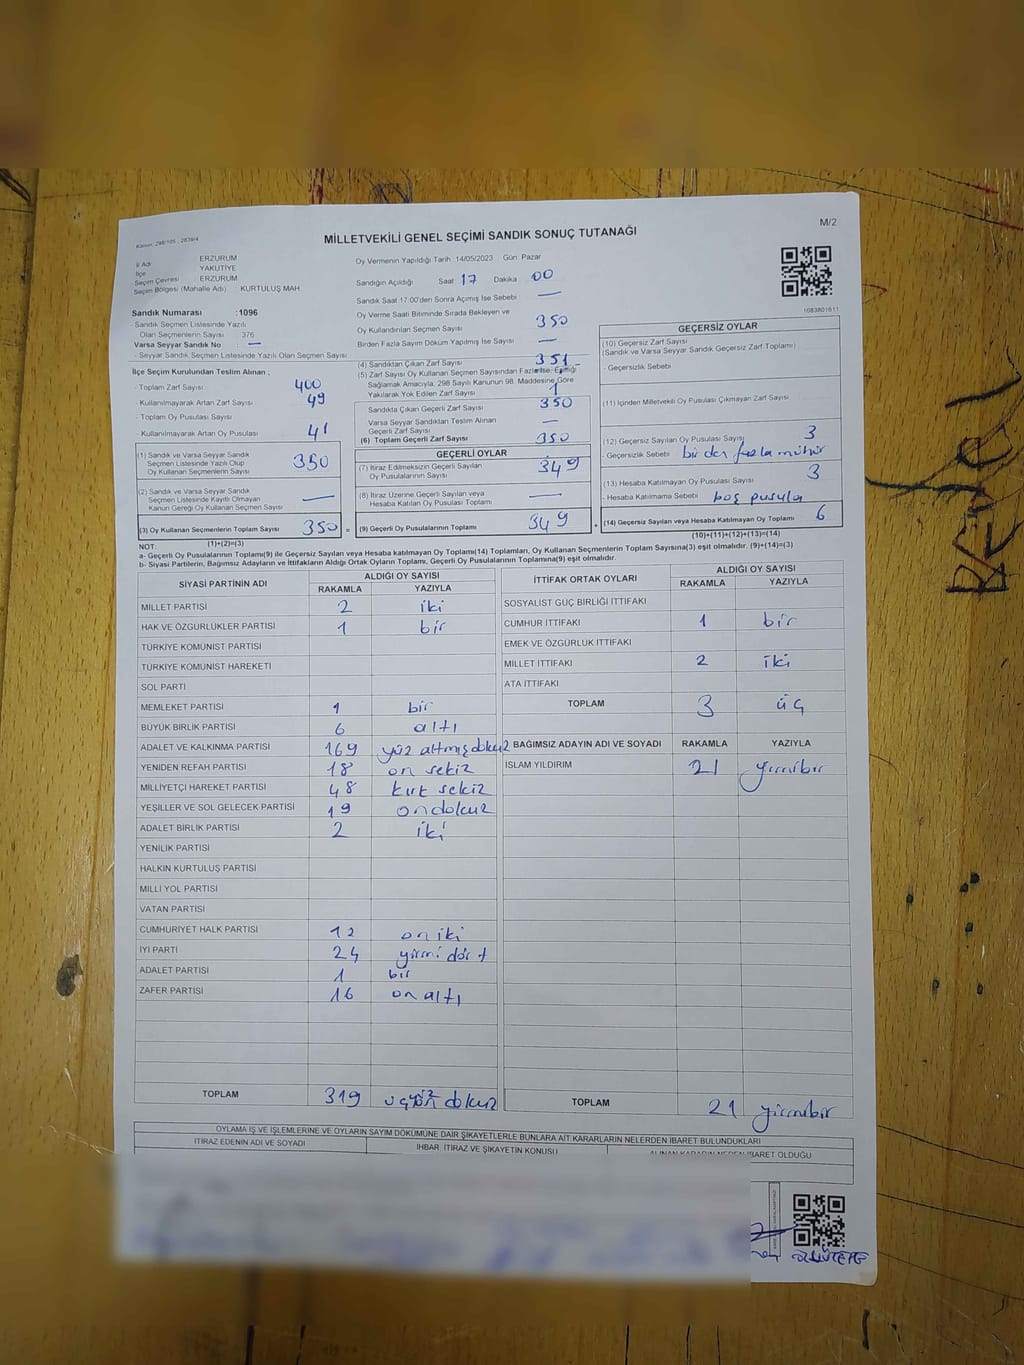 Kanun: 298/105 ; 2839/4
MİLLETVEKİLİ GENEL SEÇİMİ SANDIK SONUÇ TUTANAĞI
M/2
İl Adı ERZURUM
İlçe YAKUTİYE
Seçim Çevresi ERZURUM
Seçim Bölgesi (Mahalle Adı) KURTULUŞ MAH
Sandık Numarası :1096
- Sandık Seçmen Listesinde Yazılı
Olan Seçmenlerin Sayısı 376
Varsa Seyyar Sandık No —
- Seyyar Sandık Seçmen Listesinde Yazılı Olan Seçmen Sayısı
İlçe Seçim Kurulundan Teslim Alınan ;
- Toplam Zarf Sayısı 400
- Kullanılmayarak Artan Zarf Sayısı 49
- Toplam Oy Pusulası Sayısı
- Kullanılmayarak Artan Oy Pusulası 41
(1) Sandık ve Varsa Seyyar Sandık
Seçmen Listesinde Yazılı Olup
Oy Kullanan Seçmenlerin Sayısı 350
(2) Sandık ve Varsa Seyyar Sandık
Seçmen Listesinde Kayıtlı Olmayan
Kanun Gereği Oy Kullanan Seçmen Sayısı —
(3) Oy Kullanan Seçmenlerin Toplam Sayısı 350 =
(1)+(2)=(3)
Oy Vermenin Yapıldığı Tarih :14/05/2023 Gün: Pazar
Sandığın Açıldığı Saat 17 Dakika 00
Sandık Saat 17:00'den Sonra Açımış İse Sebebi —
Oy Verme Saati Bitiminde Sırada Bekleyen ve
Oy Kullandırılan Seçmen Sayısı 350
Birden Fazla Sayım Döküm Yapılmış İse Sayısı —
(4) Sandıktan Çıkan Zarf Sayısı 351
(5) Zarf Sayısı Oy Kullanan Seçmen Sayısından Fazla İse, Eşitliği
Sağlamak Amacıyla; 298 Sayılı Kanunun 98. Maddesine Göre
Yakılarak Yok Edilen Zarf Sayısı 1
Sandıkta Çıkan Geçerli Zarf Sayısı 350
Varsa Seyyar Sandıktan Teslim Alınan
Geçerli Zarf Sayısı —
(6) Toplam Geçerli Zarf Sayısı 350
GEÇERLİ OYLAR
(7) İtiraz Edilmeksizin Geçerli Sayılan
Oy Pusulalarının Sayısı 349
(8) İtiraz Üzerine Geçerli Sayılan veya
Hesaba Katılan Oy Pusulası Toplamı —
(9) Geçerli Oy Pusulalarının Toplamı 349 +
1083801611
GEÇERSİZ OYLAR
(10) Geçersiz Zarf Sayısı
(Sandık ve Varsa Seyyar Sandık Geçersiz Zarf Toplamı)
- Geçersizlik Sebebi
(11) İçinden Milletvekili Oy Pusulası Çıkmayan Zarf Sayısı
(12) Geçersiz Sayılan Oy Pusulası Sayısı 3
- Geçersizlik Sebebi birden fazla mühür
(13) Hesaba Katılmayan Oy Pusulası Sayısı 3
- Hesaba Katılmama Sebebi boş pusula
(14) Geçersiz Sayılan veya Hesaba Katılmayan Oy Toplamı 6
(10)+(11)+(12)+(13)=(14)
NOT:
a- Geçerli Oy Pusulalarının Toplamı(9) ile Geçersiz Sayılan veya Hesaba katılmayan Oy Toplamı(14) Toplamları, Oy Kullanan Seçmenlerin Toplam Sayısına(3) eşit olmalıdır. (9)+(14)=(3)
b- Siyasi Partilerin, Bağımsız Adayların ve İttifakların Aldığı Ortak Oyların Toplamı, Geçerli Oy Pusulalarının Toplamına(9) eşit olmalıdır.
SİYASİ PARTİNİN ADI ALDIĞI OY SAYISI
RAKAMLA YAZIYLA
MİLLET PARTİSİ 2 iki
HAK VE ÖZGÜRLÜKLER PARTİSİ 1 bir
TÜRKİYE KOMÜNİST PARTİSİ
TÜRKİYE KOMÜNİST HAREKETİ
SOL PARTİ
MEMLEKET PARTİSİ 1 bir
BÜYÜK BİRLİK PARTİSİ 6 altı
ADALET VE KALKINMA PARTİSİ 169 yüz altmış dokuz
YENİDEN REFAH PARTİSİ 18 on sekiz
MİLLİYETÇİ HAREKET PARTİSİ 48 kırk sekiz
YEŞİLLER VE SOL GELECEK PARTİSİ 19 on dokuz
ADALET BİRLİK PARTİSİ 2 iki
YENİLİK PARTİSİ
HALKIN KURTULUŞ PARTİSİ
MİLLİ YOL PARTİSİ
VATAN PARTİSİ
CUMHURİYET HALK PARTİSİ 12 on iki
İYİ PARTİ 24 yirmi dört
ADALET PARTİSİ 1 bir
ZAFER PARTİSİ 16 on altı
TOPLAM 319 üçyüz on dokuz
İTTİFAK ORTAK OYLARI ALDIĞI OY SAYISI
RAKAMLA YAZIYLA
SOSYALİST GÜÇ BİRLİĞİ İTTİFAKI
CUMHUR İTTİFAKI 1 bir
EMEK VE ÖZGÜRLÜK İTTİFAKI
MİLLET İTTİFAKI 2 iki
ATA İTTİFAKI
TOPLAM 3 üç
BAĞIMSIZ ADAYIN ADI VE SOYADI RAKAMLA YAZIYLA
İSLAM YILDIRIM 21 yirmibir
TOPLAM 21 yirmibir
OYLAMA İŞ VE İŞLEMLERİNE VE OYLARIN SAYIM DÖKÜMÜNE DAİR ŞİKAYETLERLE BUNLARA AİT KARARLARIN NELERDEN İBARET BULUNDUKLARI
İTİRAZ EDENİN ADI VE SOYADI İHBAR, İTİRAZ VE ŞİKAYETİN KONUSU ALINAN KARARIN NEDEN İBARET OLDUĞU